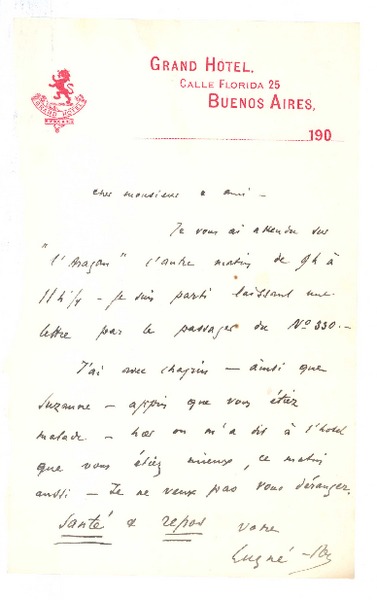 GRAND HOTEL.
CALLE FLORIDA 25
BUENOS AIRES,
190
GRAND HOTEL
cher monsieur & ami –
Je vous ai attendu sur
"l'Aragon" l'autre matin de 9h à
11h 1/4 – je suis parti laissant une
lettre par le passager du Nº 330. –
J'ai avec chagrin – ainsi que
Suzanne – appris que vous étiez
malade – hier on m'a dit à l'hotel
que vous étiez mieux, ce matin
aussi – Je ne veux pas vous déranger.
Santé & repos votre
Lugné-Poe